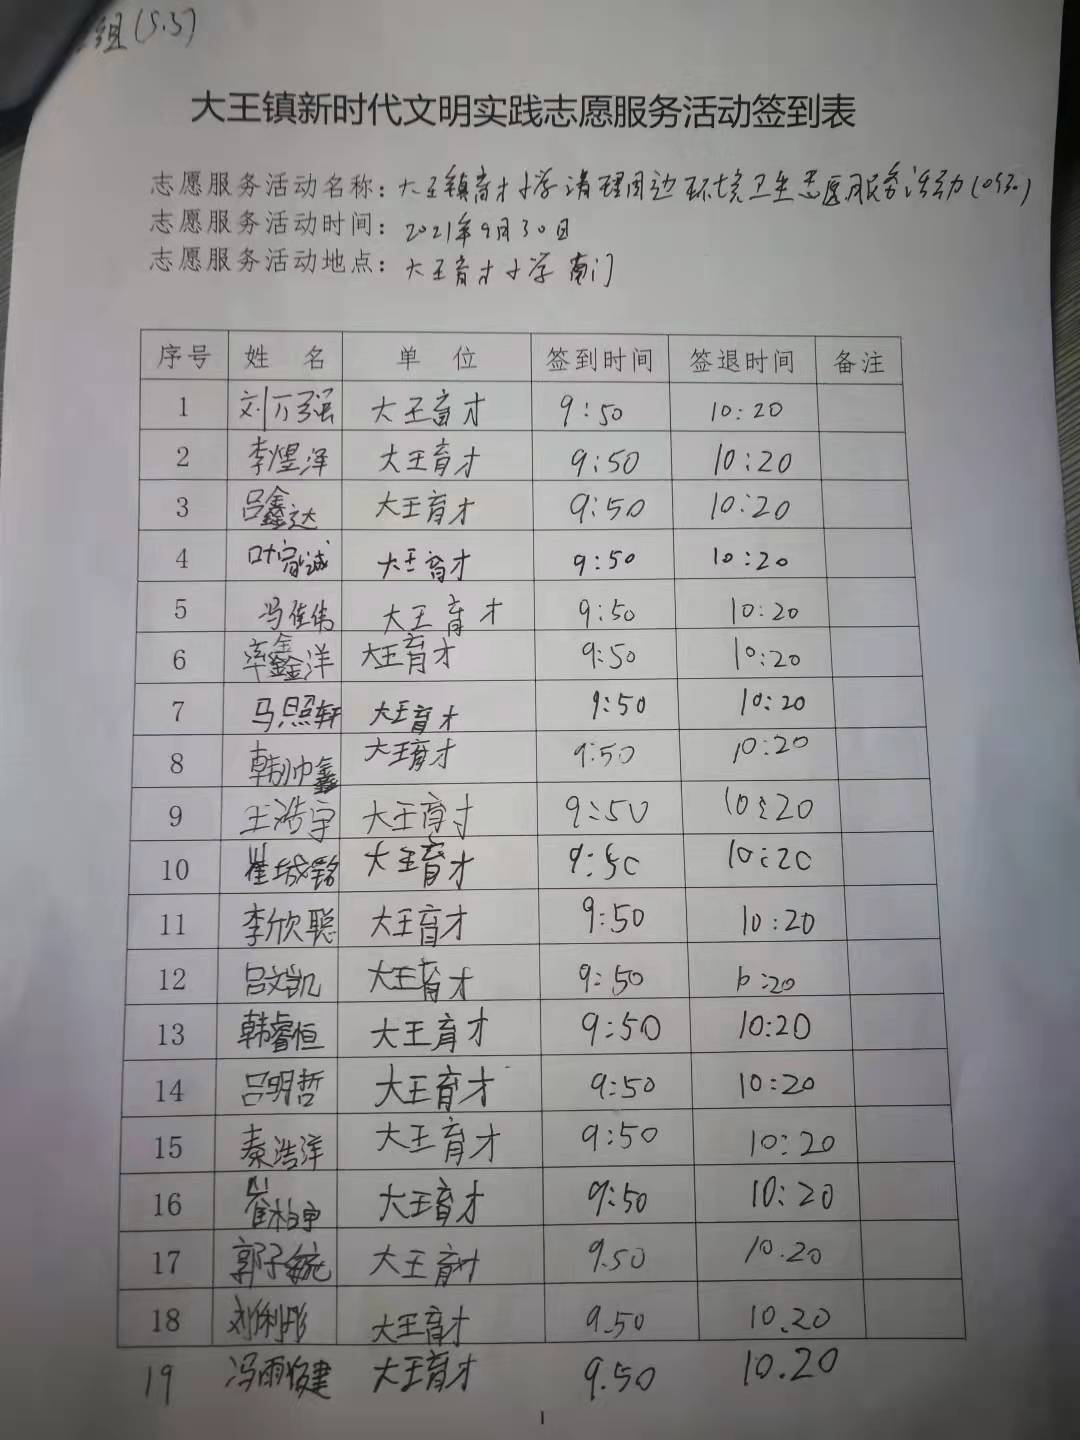 组(5.5)
大王镇新时代文明实践志愿服务活动签到表
志愿服务活动名称：大王镇育才小学清理周边环境卫生志愿服务活动(0930)
志愿服务活动时间：2021年9月30日
志愿服务活动地点：大王育才小学南门
序号 姓 名 单 位 签到时间 签退时间 备注
1 刘万强 大王育才 9:50 10:20
2 李煜泽 大王育才 9:50 10:20
3 吕鑫达 大王育才 9:50 10:20
4 叶富诚 大王育才 9:50 10:20
5 冯佳伟 大王育才 9:50 10:20
6 李鑫洋 大王育才 9:50 10:20
7 马照轩 大王育才 9:50 10:20
8 韩帅鑫 大王育才 9:50 10:20
9 王浩宇 大王育才 9:50 10:20
10 崔城铭 大王育才 9:50 10:20
11 李欣聪 大王育才 9:50 10:20
12 吕文凯 大王育才 9:50 10:20
13 韩睿恒 大王育才 9:50 10:20
14 吕明哲 大王育才 9:50 10:20
15 秦浩洋 大王育才 9:50 10:20
16 崔柏宇 大王育才 9:50 10:20
17 郭子毓 大王育才 9.50 10.20
18 刘俐彤 大王育才 9.50 10.20
19 冯雨俊建 大王育才 9.50 10.20
1